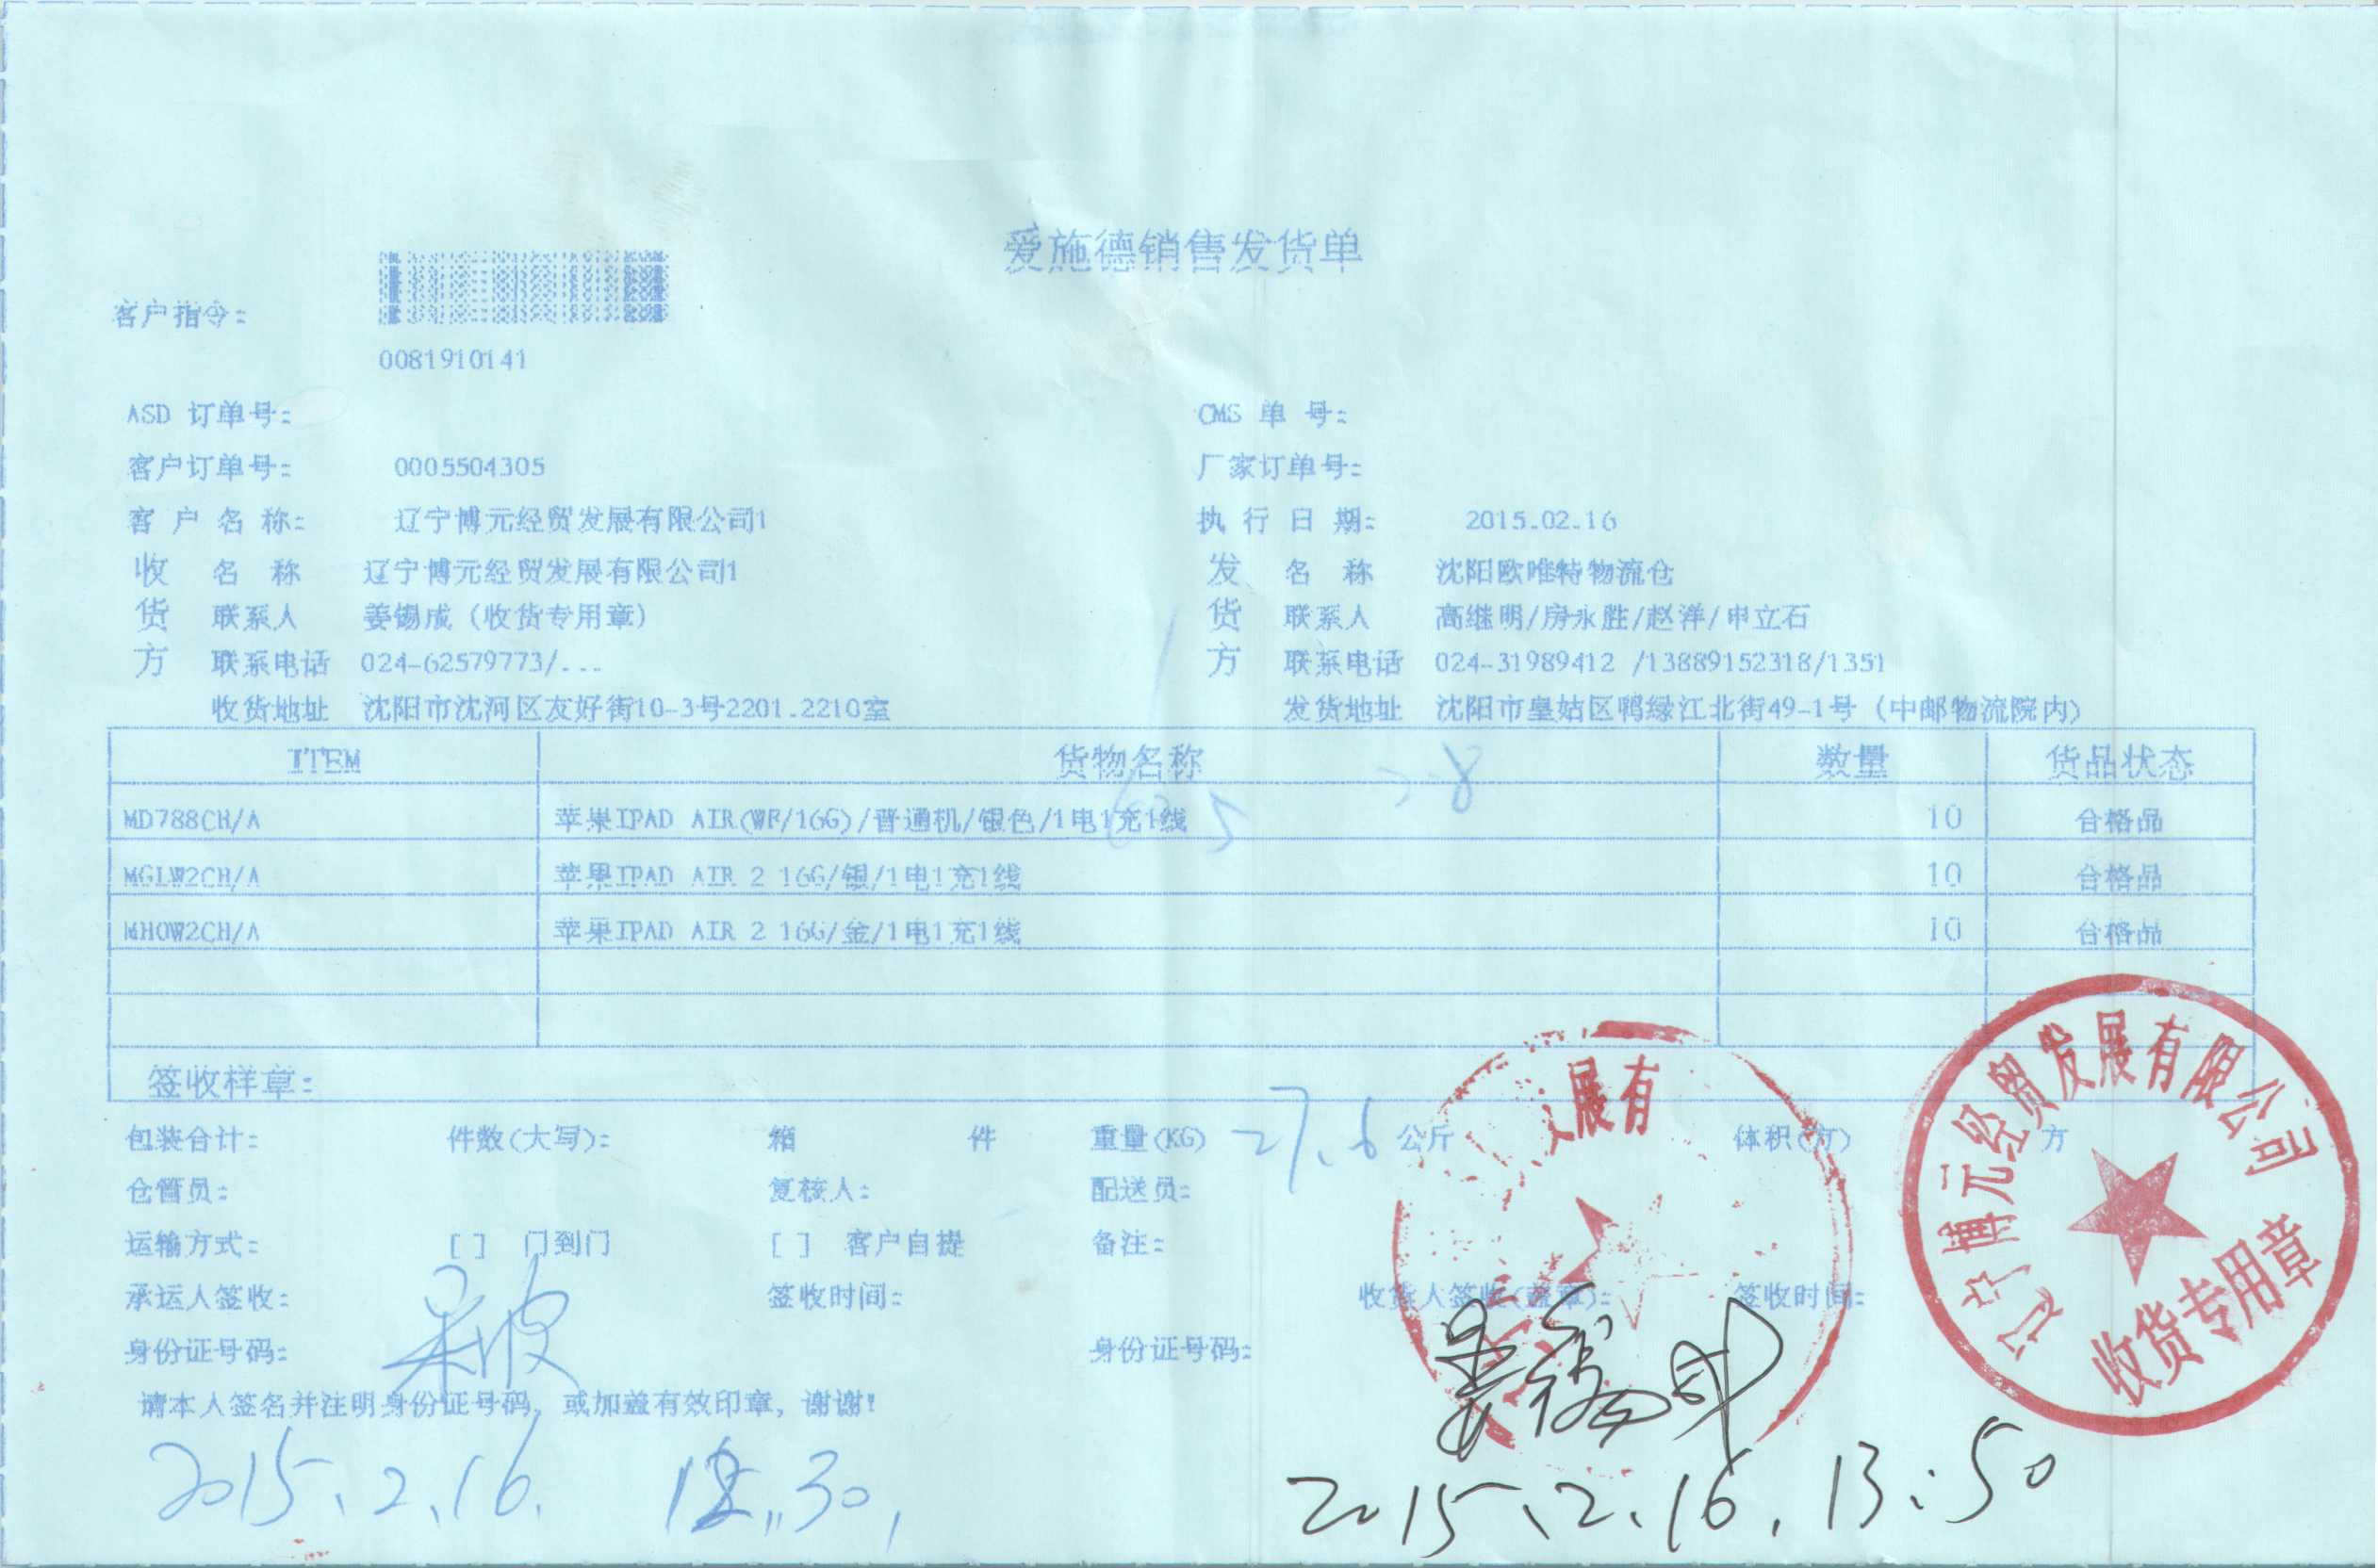 爱施德销售发货单
客户指令:
0081910141
ASD 订单号: CMS 单 号:
客户订单号: 0005504305 厂家订单号:
客 户 名 称: 辽宁博元经贸发展有限公司1 执 行 日 期: 2015.02.16
收 名 称 辽宁博元经贸发展有限公司1 发 名 称 沈阳欧唯特物流仓
货 联系人 姜锡成（收货专用章） 货 联系人 高继明/房永胜/赵洋/申立石
方 联系电话 024-62579773/... 方 联系电话 024-31989412 /13889152318/1351
收货地址 沈阳市沈河区友好街10-3号2201.2210室 发货地址 沈阳市皇姑区鸭绿江北街49-1号（中邮物流院内）
ITEM 货物名称 数量 货品状态
MD788CH/A 苹果IPAD AIR(WF/16G)/普通机/银色/1电1充1线 10 合格品
MGLW2CH/A 苹果IPAD AIR 2 16G/银/1电1充1线 10 合格品
MH0W2CH/A 苹果IPAD AIR 2 16G/金/1电1充1线 10 合格品
签收样章:
包装合计: 件数(大写): 箱 件 重量(KG) 27.6 公斤 体积(方) 方
仓管员: 复核人: 配送员:
运输方式: [ ] 门到门 [ ] 客户自提 备注:
承运人签收: 签收时间: 收货人签收(盖章): 签收时间:
身份证号码: 身份证号码:
请本人签名并注明身份证号码，或加盖有效印章，谢谢!
姜锡成
2015.2.16. 2015.2.16. 13:50
展有
辽宁博元经贸发展有限公司
收货专用章